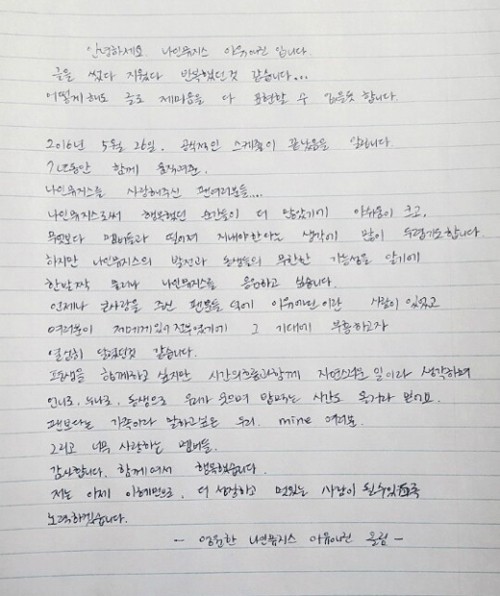 안녕하세요 나인뮤지스 이유애린 입니다.
글을 썼다 지웠다 반복했던것 같습니다...
어떻게해도 글로 제마음을 다 표현할 수 없을듯 합니다.
2016년 5월 26일. 공식적인 스케줄이 끝났음을 알립니다.
7년동안 함께 울고웃던
나인뮤지스를 사랑해주신 팬여러분들....
나인뮤지스로써 행복했던 순간들이 더 많았기에 아쉬움이 크고,
무엇보다 멤버들과 떨어져 지내야한다는 생각에 많이 두렵기도합니다
하지만 나인뮤지스의 발전과 동생들의 무한한 가능성을 알기에
한발짝 물러나 나인뮤지스를 응원하고 싶습니다.
언제나 큰사랑을 주신 팬분들 덕에 이유애린이란 사람이 있었고
여러분이 저에게있어 전부였기에 그 기대에 부응하고자
열심히 달려왔던것 같습니다.
모든것을 함께하고 싶지만 시간의흐름과함께 자연스러운 일이라 생각하며
언니로, 누나로, 동생으로 우리가 웃으며 만나는 시간도 올거라 믿어요.
팬보다는 가족이라 말하고싶은 우리. mine 여러분.
그리고 너무 사랑하는 멤버들.
감사합니다. 함께여서 행복했습니다.
저는 이제 이혜민으로, 더 성장하고 멋있는 사람이 될수있도록
노력하겠습니다.
- 영원한 나인뮤지스 이유애린 올림 -